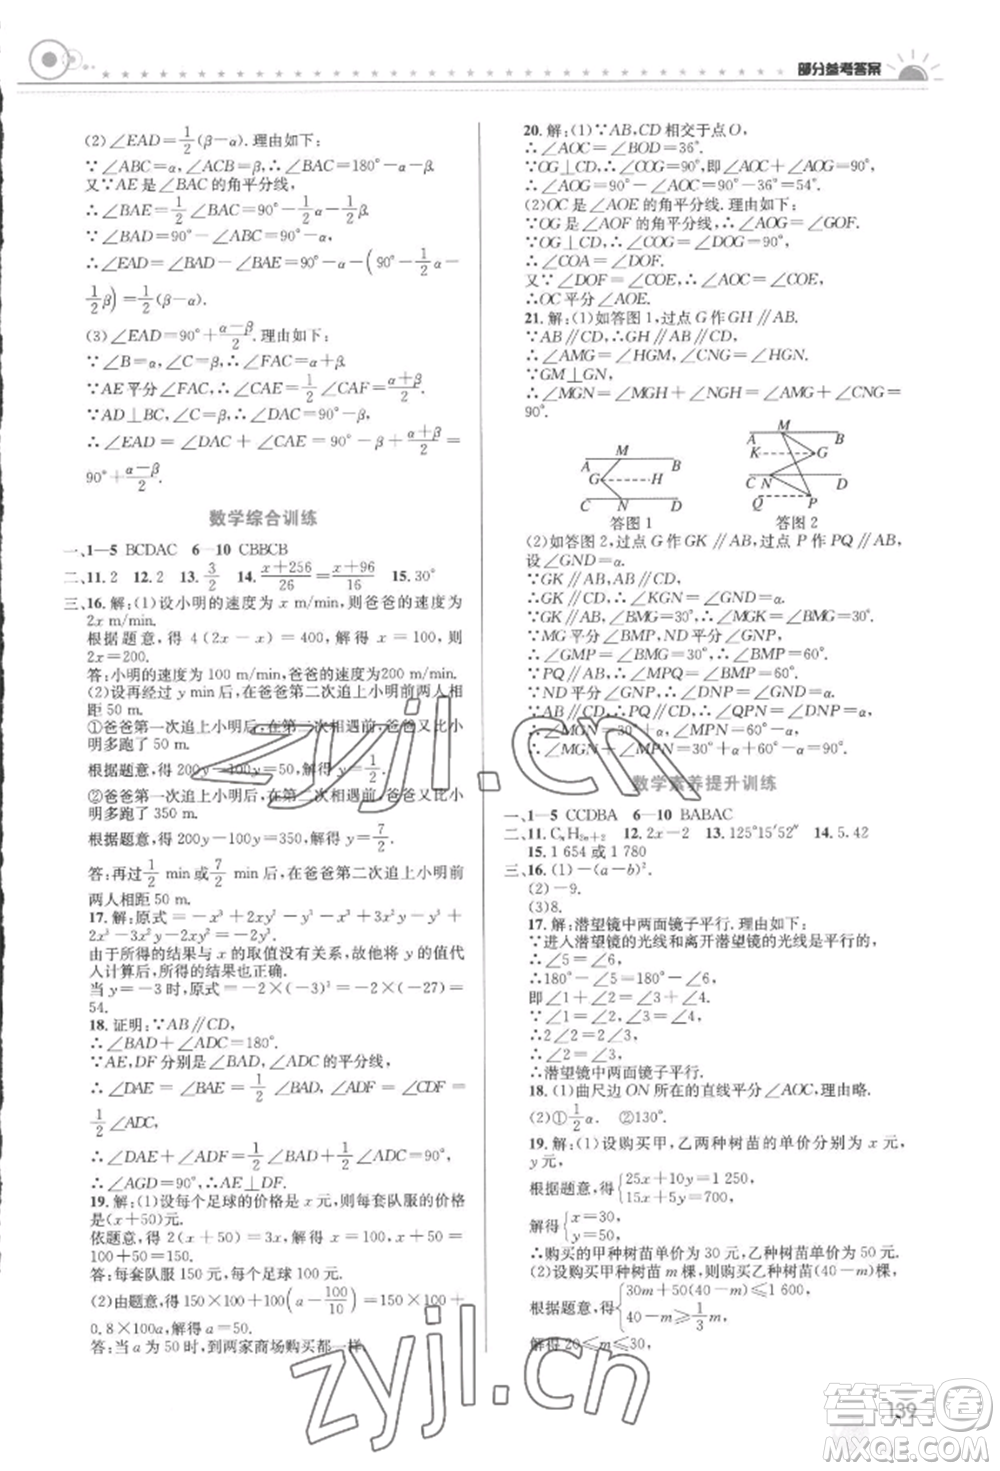 部分参考答案
(2)∠EAD=1/2(β-α).理由如下:
∵∠ABC=α,∠ACB=β,∴∠BAC=180°-α-β.
又∵AE是∠BAC的角平分线,
∴∠BAE=1/2∠BAC=90°-1/2α-1/2β.
∵∠BAD=90°-∠ABC=90°-α,
∴∠EAD=∠BAD-∠BAE=90°-α-(90°-1/2α-
1/2β)=1/2(β-α).
(3)∠EAD=90°+(α-β)/2.理由如下:
∵∠B=α,∠C=β,∴∠FAC=α+β.
∵AE平分∠FAC,∴∠CAE=1/2∠CAF=(α+β)/2.
∵AD⊥BC,∠C=β,∴∠DAC=90°-β.
∴∠EAD=∠DAC+∠CAE=90°-β+(α+β)/2=
90°+(α-β)/2.
数学综合训练
一、1—5 BCDAC 6—10 CBBCB
二、11.2 12.2 13.3/2 14.(x+256)/26=(x+96)/16 15.30°
三、16.解:(1)设小明的速度为x m/min,则爸爸的速度为
2x m/min.
根据题意,得4(2x-x)=400,解得x=100,则
2x=200.
答:小明的速度为100 m/min,爸爸的速度为200 m/min.
(2)设再经过y min后,在爸爸第二次追上小明前两人相
距50 m.
①爸爸第一次追上小明后,在第二次相遇前,爸爸又比小
明多跑了50 m.
根据题意,得200y-100y=50,解得y=1/2.
②爸爸第一次追上小明后,在第二次相遇前,爸爸又比小
明多跑了350 m.
根据题意,得200y-100y=350,解得y=7/2.
答:再过1/2 min或7/2 min后,在爸爸第二次追上小明前
两人相距50 m.
17.解:原式=-x³+2xy²-2y³+x³-2xy²=
-2y³.
由于所得的结果与x的取值没有关系,故他将y的值代
入计算后,所得的结果也正确.
当y=-3时,原式=-2×(-3)³=-2×(-27)=
54.
18.证明:∵AB∥CD,
∴∠BAD+∠ADC=180°.
∵AE,DF分别是∠BAD,∠ADC的平分线,
∴∠DAE=∠BAE=1/2∠BAD,∠ADF=∠CDF=
1/2∠ADC,
∴∠DAE+∠ADF=1/2∠BAD+1/2∠ADC=90°,
∴∠AGD=90°,∴AE⊥DF.
19.解:(1)设每个足球的价格是x元,则每套队服的价格
是(x+50)元.
依题意,得2(x+50)=3x,解得x=100,
∴x+50=150.
答:每套队服150元,每个足球100元.
(2)由题意,得150×100+100(a-100/10)=150×100+
0.8×100a,解得a=50.
答:当a为50时,到两家商场购买都一样.
20.解:(1)∵AB,CD相交于点O,
∴∠AOC=∠BOD=36°.
∵OG⊥CD,∴∠COG=90°,即∠AOC+∠AOG=90°,
∴∠AOG=90°-∠AOC=90°-36°=54°.
(2)OC是∠AOE的角平分线.理由如下:
∵OG是∠AOF的角平分线,∴∠AOG=∠GOF.
∵OG⊥CD,∴∠COG=∠DOG=90°,
∴∠COA=∠DOF.
又∵∠DOF=∠COE,∴∠AOC=∠COE,
∴OC平分∠AOE.
21.解:(1)如答图1,过点G作GH∥AB.
∵AB∥CD,∴GH∥AB∥CD,
∴∠AMG=∠HGM,∠CNG=∠HGN.
∵GM⊥GN,
∴∠MGN=∠MGH+∠NGH=∠AMG+∠CNG=
90°.
A M B
G H
C N D
答图1
A M B
K G
C N D
Q P
答图2
(2)如答图2,过点G作GK∥AB,过点P作PQ∥AB,
设∠GND=α.
∵GK∥AB,AB∥CD,
∴GK∥CD,∴∠KGN=∠GND=α.
∵GK∥AB,∠BMG=30°,∴∠MGK=∠BMG=30°.
∵MG平分∠BMP,ND平分∠GNP,
∴∠GMP=∠BMG=30°,∴∠BMP=60°.
∵PQ∥AB,∴∠MPQ=∠BMP=60°.
∵ND平分∠GNP,∴∠DNP=∠GND=α.
∵AB∥CD,∴PQ∥CD,∴∠QPN=∠DNP=α,
∴∠MGN=30°+α,∠MPN=60°-α,
∴∠MGN+∠MPN=30°+α+60°-α=90°.
数学素养提升训练
一、1—5 CCDBA 6—10 BABAC
二、11.CₙH₂ₙ₊₂ 12.2x-2 13.125°15′52″ 14.5.42
15.1 654或1 780
三、16.(1)-(a-b)².
(2)-9.
(3)8.
17.解:潜望镜中两面镜子平行.理由如下:
∵进入潜望镜的光线和离开潜望镜的光线是平行的,
∴∠5=∠6,
∴180°-∠5=180°-∠6,
即∠1+∠2=∠3+∠4,
∵∠1=∠2,∠3=∠4,
∴2∠2=2∠3,
∴∠2=∠3,
∴潜望镜中两面镜子平行.
18.(1)曲尺边ON所在的直线平分∠AOC,理由略.
(2)①1/2α. ②130°.
19.解:(1)设购买甲,乙两种树苗的单价分别为x元,
y元.
根据题意,得{25x+10y=1 250,
15x+5y=700,
解得{x=30,
y=50.
∴购买的甲种树苗单价为30元,乙种树苗单价为50元.
(2)设购买甲种树苗m棵,则购买乙种树苗(40-m)棵,
根据题意,得{30m+50(40-m)≤1 600,
40-m≥1/3m,
解得20≤m≤30.
139
zyjl.cn
zyjl.cn
答案圈
MXQE.COM